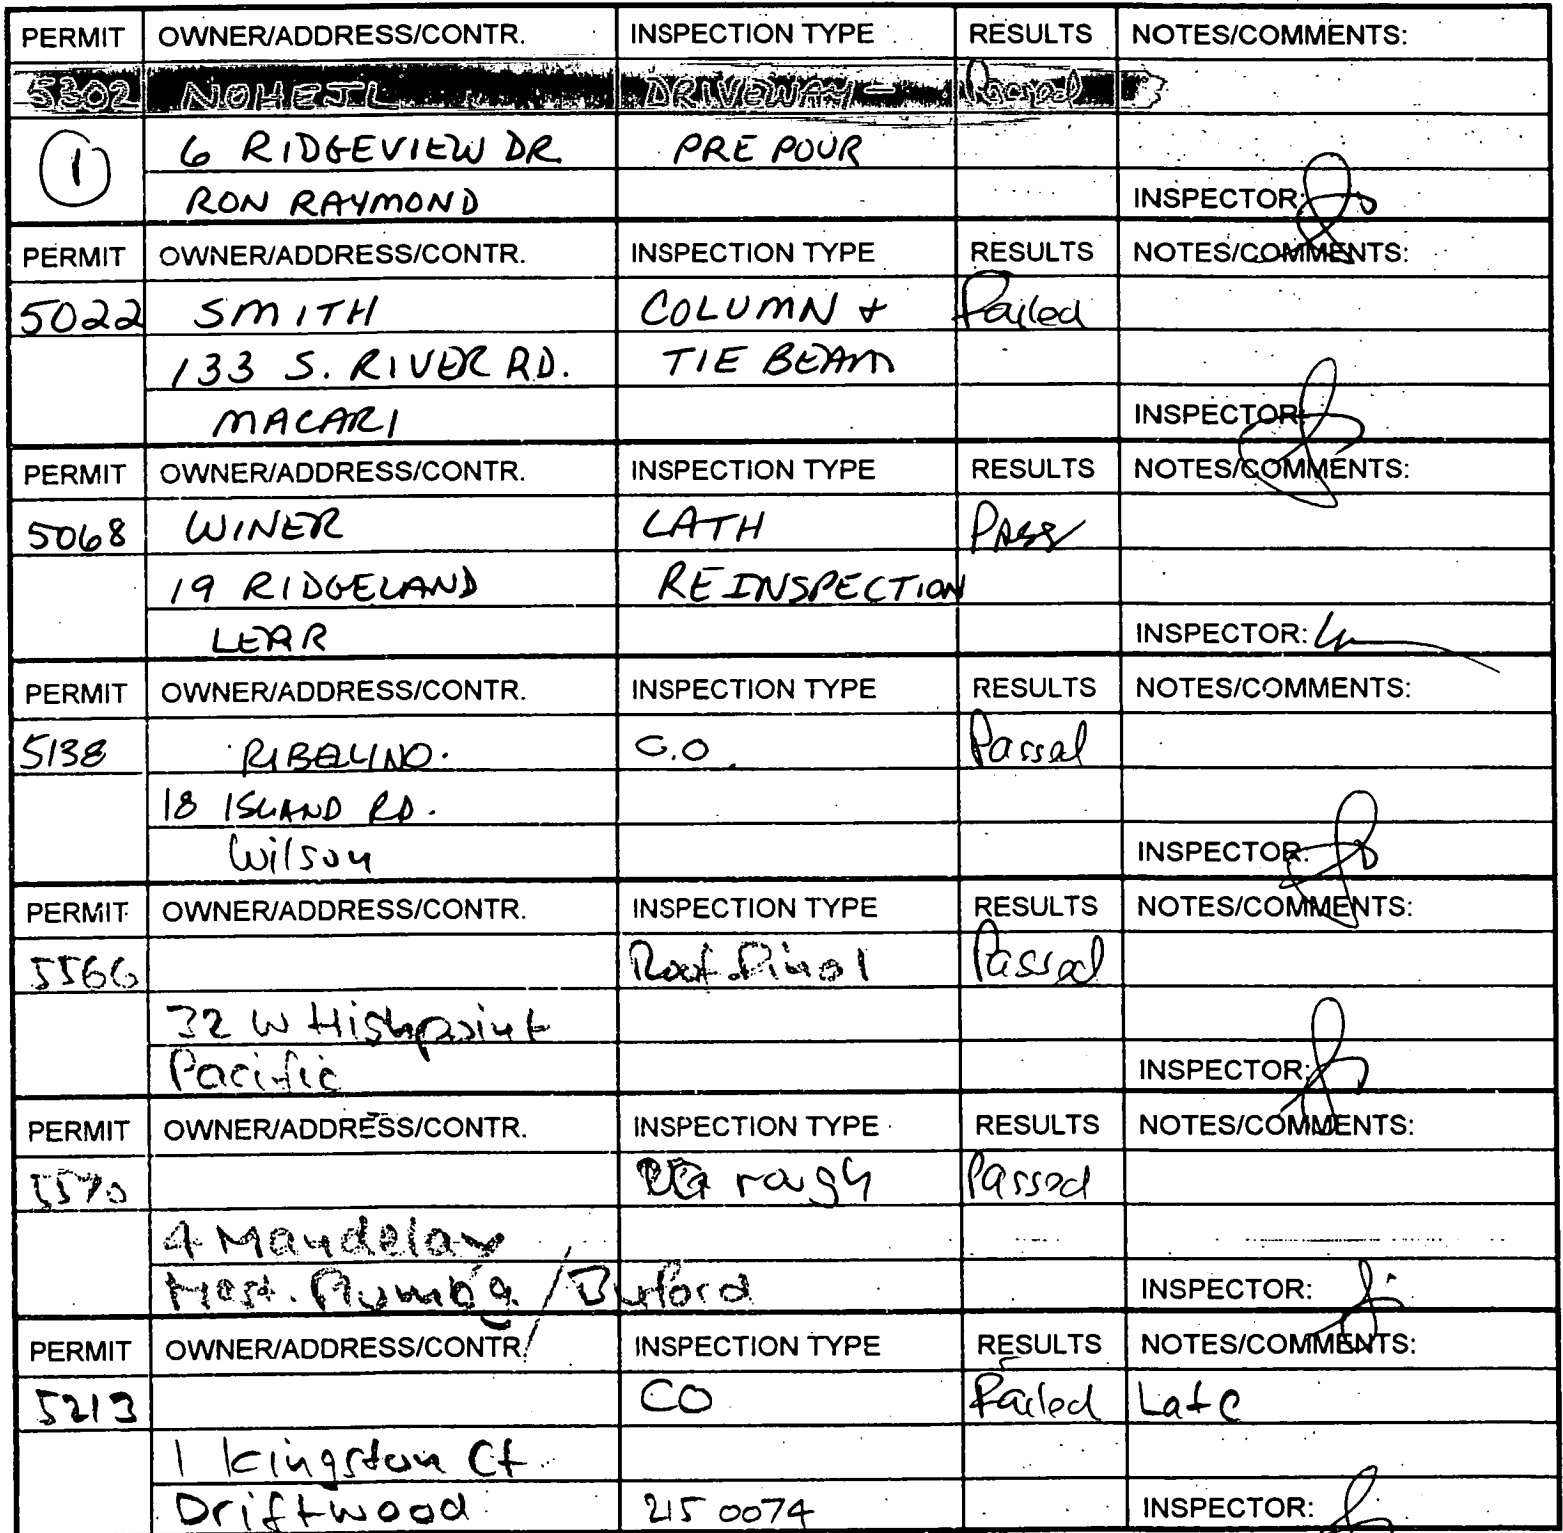 PERMIT OWNER/ADDRESS/CONTR. INSPECTION TYPE RESULTS NOTES/COMMENTS:
5302 NOHEJL DRIVEWAY- Passed
1 6 RIDGEVIEW DR. PRE POUR
RON RAYMOND INSPECTOR:
PERMIT OWNER/ADDRESS/CONTR. INSPECTION TYPE RESULTS NOTES/COMMENTS:
5022 SMITH COLUMN + Failed
133 S. RIVER RD. TIE BEAM
MACARI INSPECTOR:
PERMIT OWNER/ADDRESS/CONTR. INSPECTION TYPE RESULTS NOTES/COMMENTS:
5068 WINER LATH PASS
19 RIDGELAND REINSPECTION
LEAR INSPECTOR:
PERMIT OWNER/ADDRESS/CONTR. INSPECTION TYPE RESULTS NOTES/COMMENTS:
5138 RIBELLINO. C.O. Passed
18 ISLAND RD.
Wilson INSPECTOR:
PERMIT OWNER/ADDRESS/CONTR. INSPECTION TYPE RESULTS NOTES/COMMENTS:
5566 Roof Final Passed
32 W Highpoint
Pacific INSPECTOR:
PERMIT OWNER/ADDRESS/CONTR. INSPECTION TYPE RESULTS NOTES/COMMENTS:
5570 rough Passed
4 Mandelay
/ Buford INSPECTOR:
PERMIT OWNER/ADDRESS/CONTR. INSPECTION TYPE RESULTS NOTES/COMMENTS:
5213 CO Failed Late
1 Kingston Ct
Driftwood 215 0074 INSPECTOR: